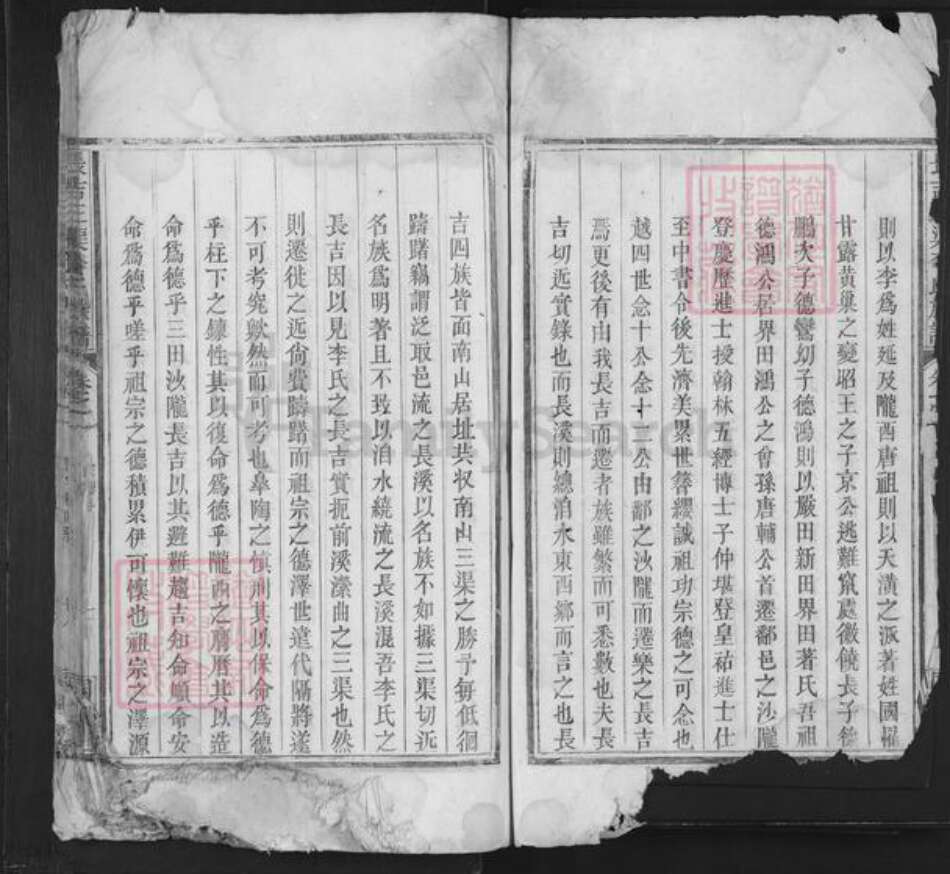 則以李爲姓延及隴酉唐祖則以天潢之派著姓國
甘露黄巢之變昭王之子京公逃難竄處徽饒長子德
鵬次子德鸞幼子德鴻則以嚴田新田界田著氏吾祖
德鴻公居界田鴻公之會孫唐輔公首遷鄱邑之沙隴
登慶歷進士授翰林五經博士子仲堪登皇祐進士仕
至中書令後先濟美累世簪纓誠祖功宗德之可念也
越四世念十公念十三公由鄱之沙隴而遷樂之長吉
焉更後有由我長吉而遷者族雖繁而可悉數也夫長
吉切近實錄也而長溪則總洎水東西鄉而言之也長
吉四族皆面南山居址共収南山三渠之勝予每低徊
躊躇竊謂泛取邑流之長溪以名族不如據三渠切近
名族爲明著且不致以洎水繞流之長溪混吾李氏之
長吉因以見李氏之長吉實扼前溪瀠曲之三渠也然
則遷徙之近尙費躊躇而祖宗之德澤世遠代隔將遂
不可考究歟然而可考也臯陶之慎刑其以保命爲德
乎柱下之鍊性其以復命爲德乎隴西之膺曆其以造
命爲德乎三田沙隴長吉以其避難趨吉知命順命安
命爲德乎嗟乎祖宗之德積累伊可懷也祖宗之澤源